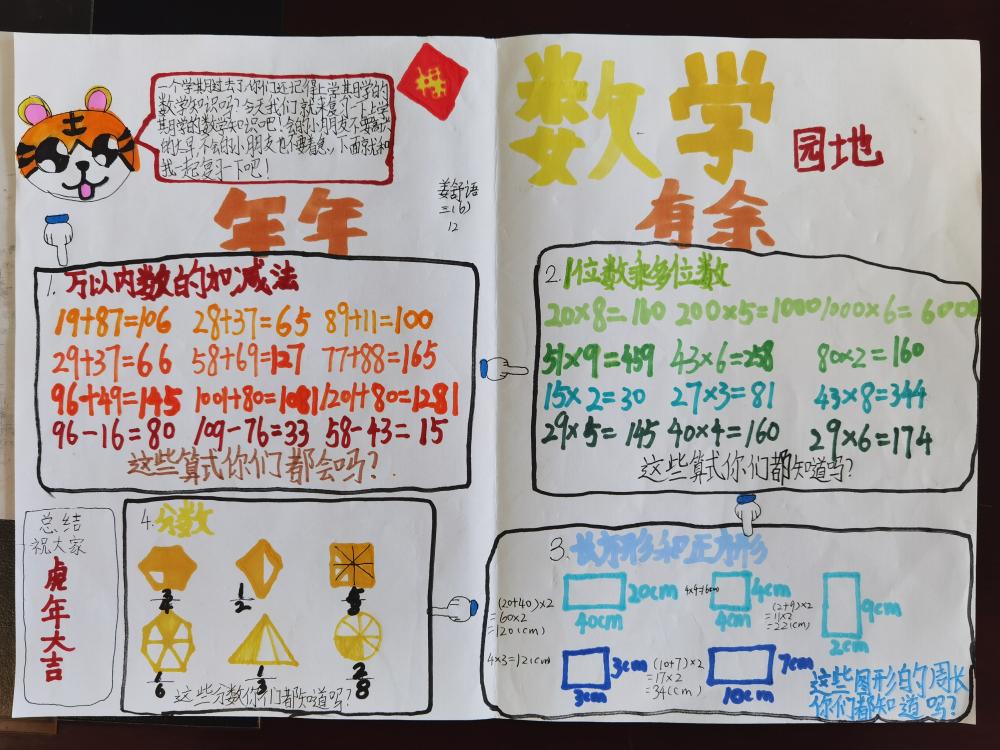 一个学期过去了你们还记得上学其月学的
数学知识吗？今天我们就来复习一下上学
其月学的数学知识吧！会的小朋友不要
不会的小朋友也不要着急，下面就和
我一起复习一下吧！
数学
园地
年年
有余
姜舒语
三(6)
12
1. 万以内数的加减法
19+87=106 28+37=65 89+11=100
29+37=66 58+69=127 77+88=165
96+49=145 1001+80=1081 1201+80=1281
96-16=80 109-76=33 58-43=15
这些算式你们都会吗？
2. 1位数乘多位数
20×8=160 200×5=1000 1000×6=6000
51×9=459 43×6=258 80×2=160
15×2=30 27×3=81 43×8=344
29×5=145 40×4=160 29×6=174
这些算式你们都知道吗？
3. 长方形和正方形
20cm
40cm
(20+40)×2
=60×2
=120(cm)
4×4=16cm
4cm
4cm
(2+9)×2
=11×2
=22(cm)
9cm
2cm
4×3=12(cm)
3cm
3cm
(10+7)×2
=17×2
=34(cm)
7cm
10cm
这些图形的周长
你们都知道吗？
4. 分数
3/4
1/2
1/6
1/3
2/8
这些分数你们都知道吗？
总结
祝大家
虎年大吉